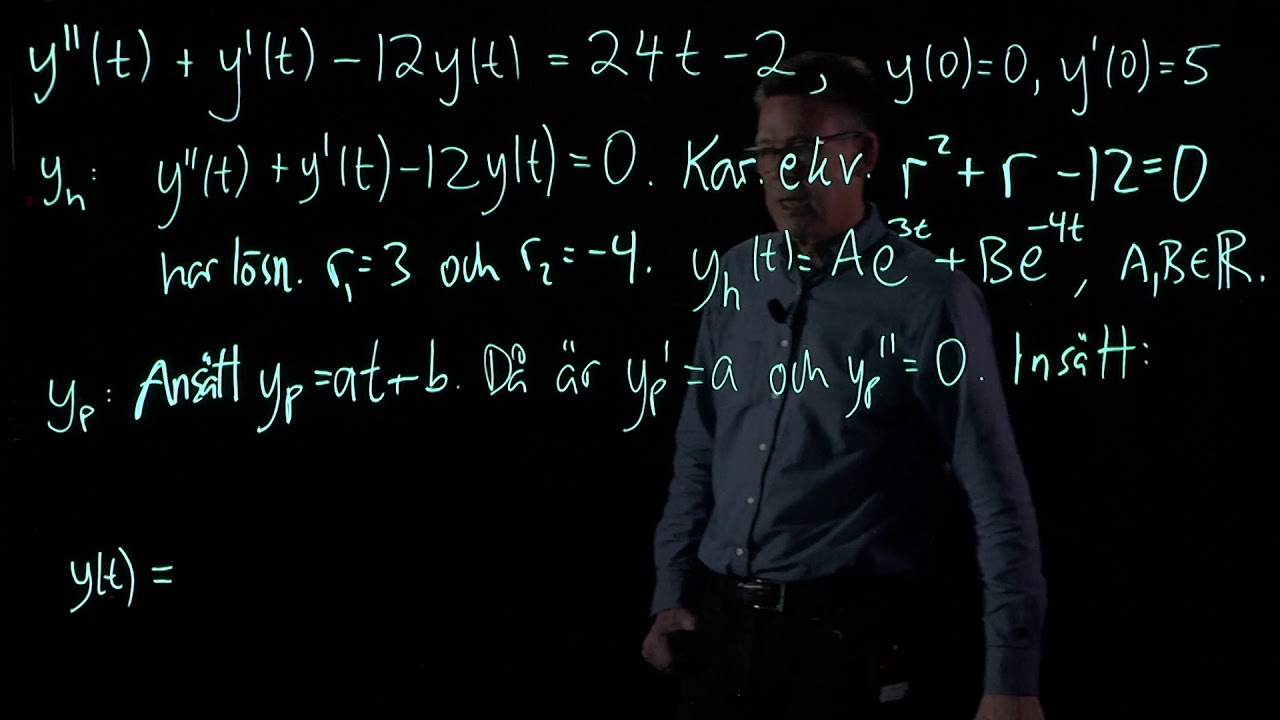 y''(t) + y'(t) - 12y(t) = 24t - 2, y(0)=0, y'(0)=5
y_h: y''(t) + y'(t) - 12y(t) = 0. Kar. ekv. r² + r - 12 = 0
har lösn. r₁ = 3 och r₂ = -4. y_h(t) = Ae^{3t} + Be^{-4t}, A,B∈ℝ.
y_p: Ansätt y_p = at + b. Då är y_p' = a och y_p'' = 0. Insätt:
y(t) =